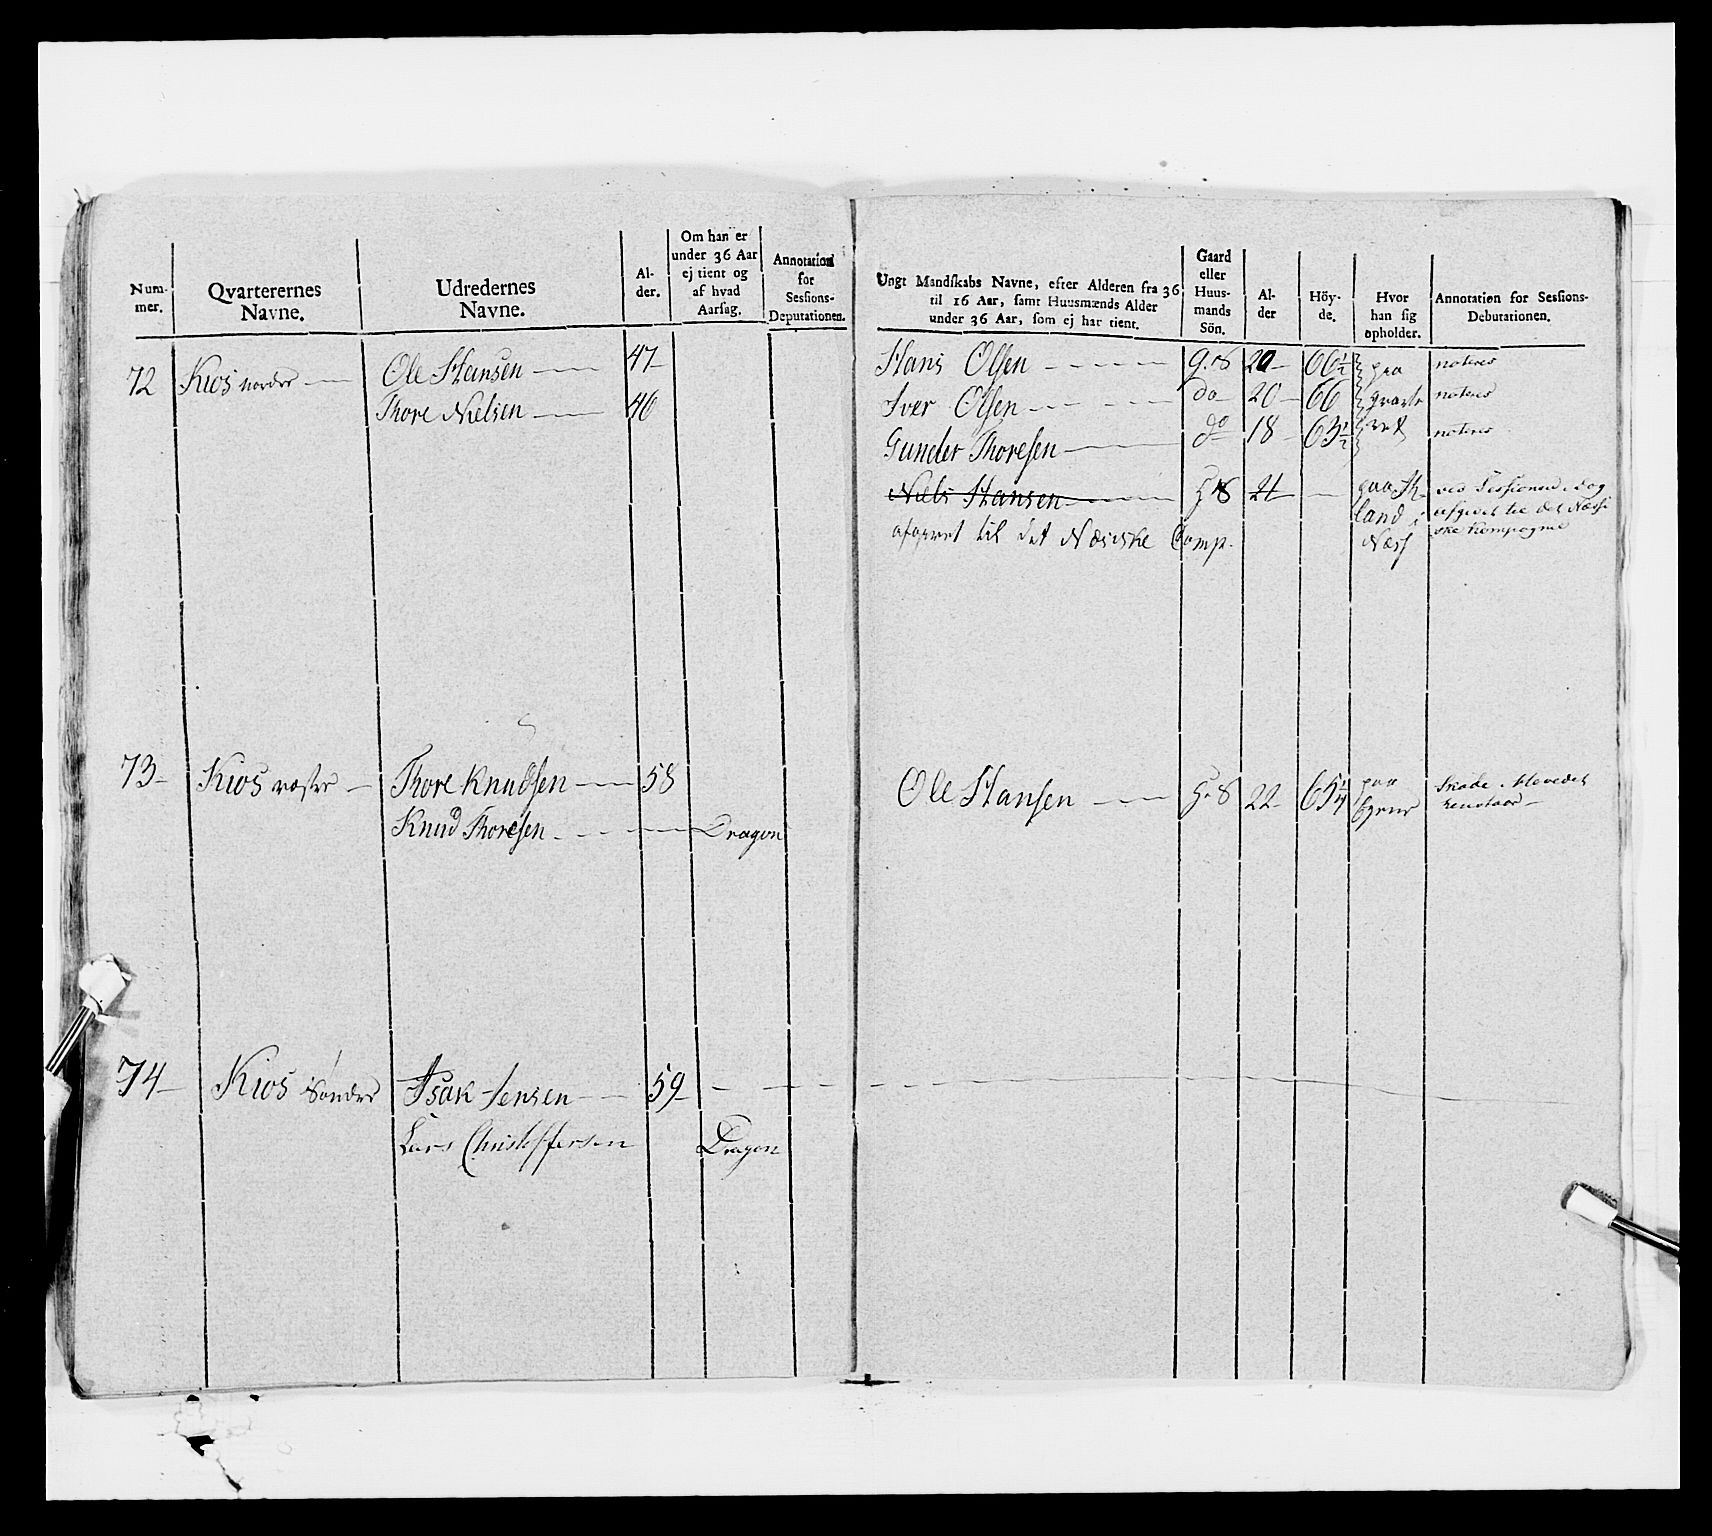 Num-
mer.
Qvarterernes
Navne.
Udredernes
Navne.
Al-
der.
Om han er
under 36 Aar
ej tient og
af hvad
Aarsag.
Annotation
for
Sessions-
Deputationen.
72 Kios nordre Ole Hansen 47
Thore Nielsen 46
73 Kios vestre Thore Knudsen 58
Knud Thoresen Dragon
74 Kios Søndre Isak Jensen 59
Lars Christoffersen Dragon
Ungt Mandskabs Navne, efter Alderen fra 36
til 16 Aar, samt Huusmænds Alder
under 36 Aar, som ej har tient.
Gaard
eller
Huus-
mands
Sön.
Al-
der
Höy-
de.
Hvor
han sig
opholder.
Annotation for Sessions-
Debutationen.
Hans Olsen 20 66 1/2 paa noteres
Iver Olsen do 20 66 noteres
Gunder Thoresen do 18 63 1/2 noteres
Niels Hansen 21 ved Sessionen
land i afgivet til det Næssi
afgivet til det Næsiske Comp. Næss ske Kompagnie
Ole Hansen 22 65 1/4 paa Skade i Hovedet